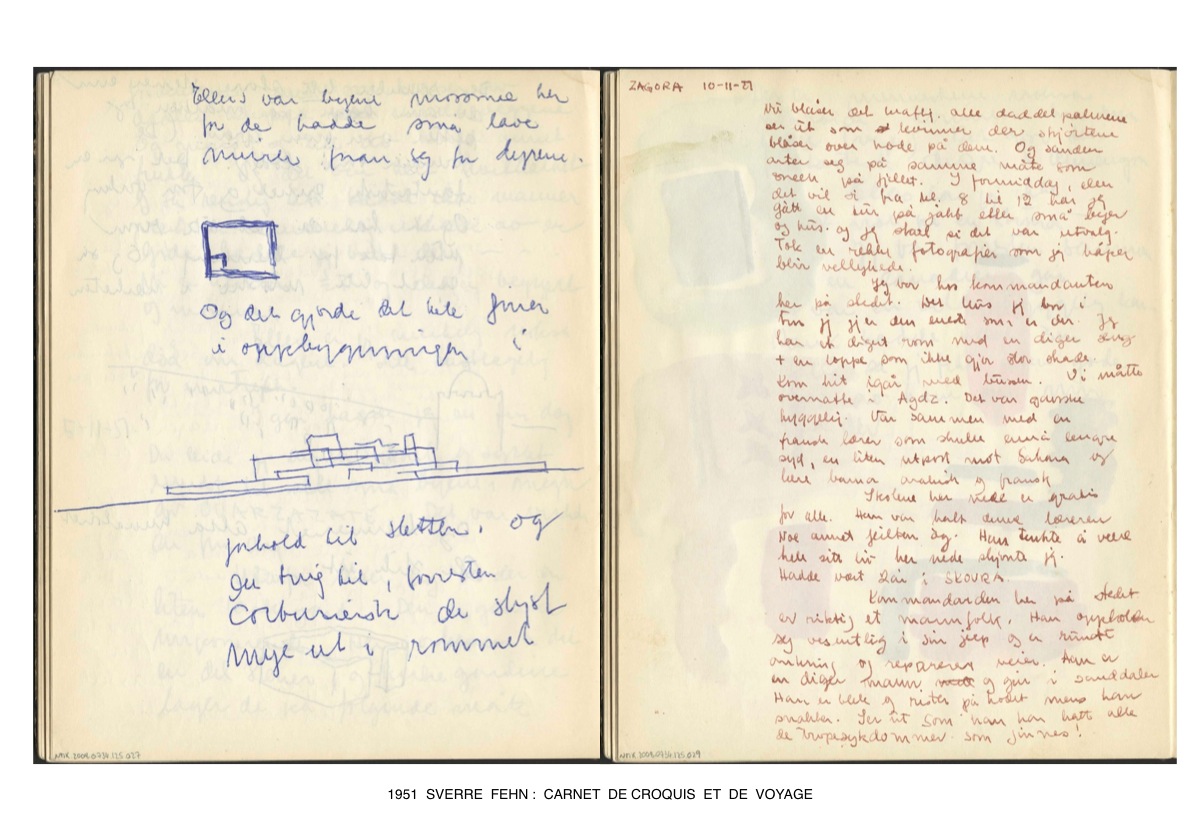 Ellers var byene morsomme her
for de hadde små lave
murer foran seg for dyrene.
Og det gjorde det hele finere
i oppbygningen i
forhold til sletten. Og
du trur til, forresten
Corbusiersk de skjøt
mye ut i rommet
NMK.2008.0734.125.027
ZAGORA 10-11-51
Nu blåser det kraftig, alle daddelpalmene
ser ut som kvinner der skjørtene
blåser over hode på dem. Og sanden
arter seg på samme måte som
sneen på fjellet. I formiddag, den
det vil si fra kl. 8 til 12 har jeg
gått en tur på jakt etter små byer
og hus. og jeg skal si det var utvalg.
Tok en rekke fotografier som jeg håper
blir vellykkede.
Jeg bor hos kommandanten
her på stedet. Det hus jeg bor i
tror jeg er den eneste som er der. Jeg
har et digert rom med en diger seng
+ en loppe som ikke gjør stor skade.
Kom hit igår med bussen. Vi måtte
overnatte i Agdz. Det var ganske
hyggelig. Var sammen med en
fransk lærer som skulle ennå lengre
syd, en liten utpost mot Sahara og
lære barna arabisk og fransk
Skolene her nede er gratis
for alle. Han var halt denne læreren
Noe annet feilten seg. Han tenkte å være
hele sitt liv her nede skjønte jeg.
Hadde vært 2 år i SKOURA.
Kommandanten her på stedet
er riktig et mannfolk. Han oppholder
seg vesentlig i sin jeep og er rundt
omkring og reparerer veier. Han er
en diger mann og går i sandaler
Han er blek og rister på hodet mens han
snakker. Ser ut som han har hatt alle
de tropesykdommer som finnes!
NMK.2008.0734.125.029
1951 SVERRE FEHN : CARNET DE CROQUIS ET DE VOYAGE